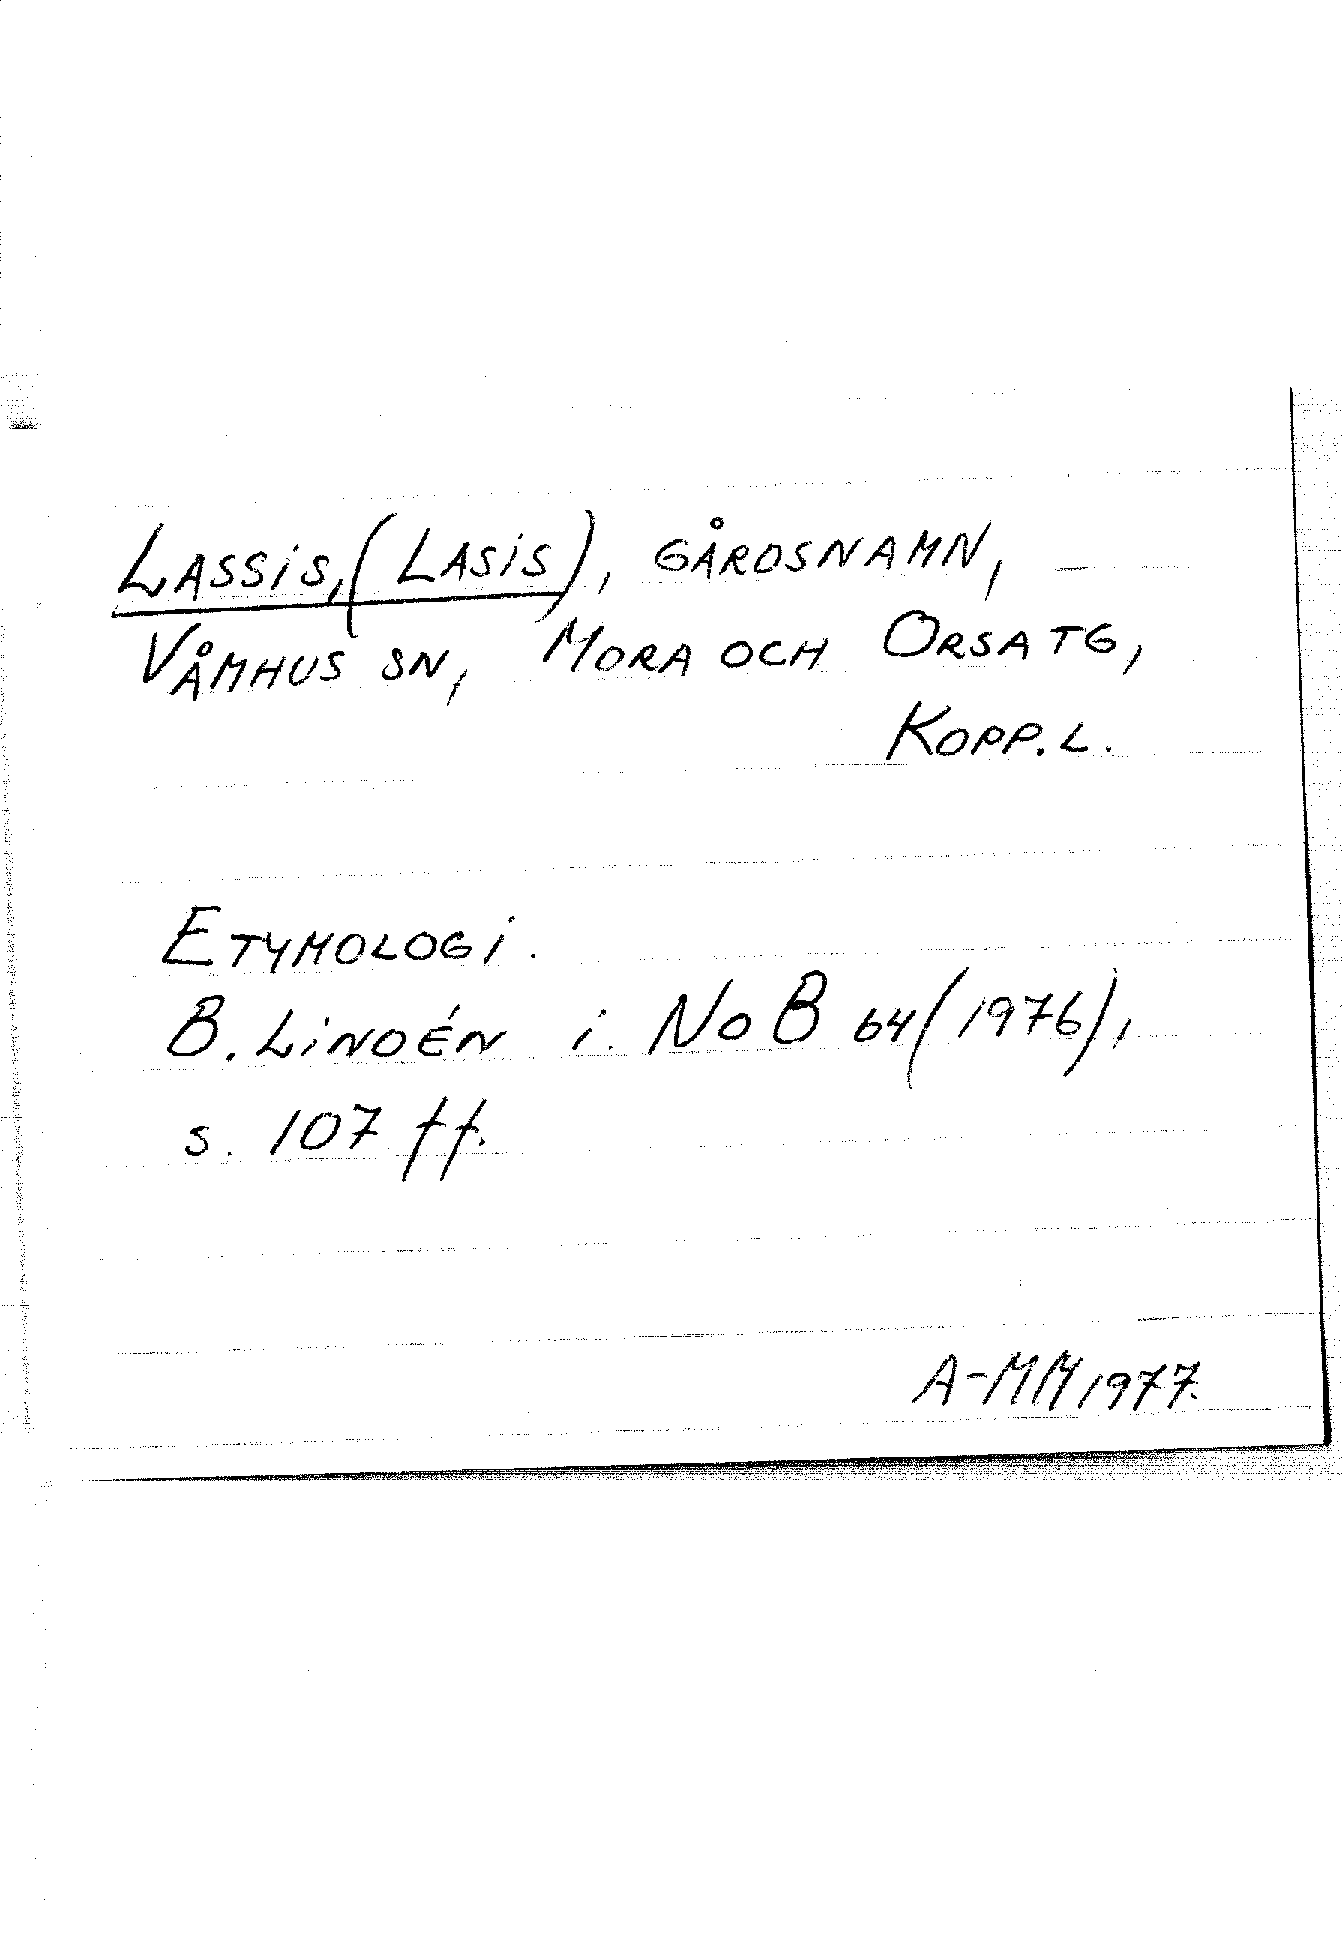 LASSIS, (LASIS), GÅRDSNAMN,
VÅMHUS SN, MORA OCH ORSA TG,
KOPP. L.
ETYMOLOGI.
B. LINDÉN i NoB 64 (1976),
s. 107 ff.
A-MM 1977.